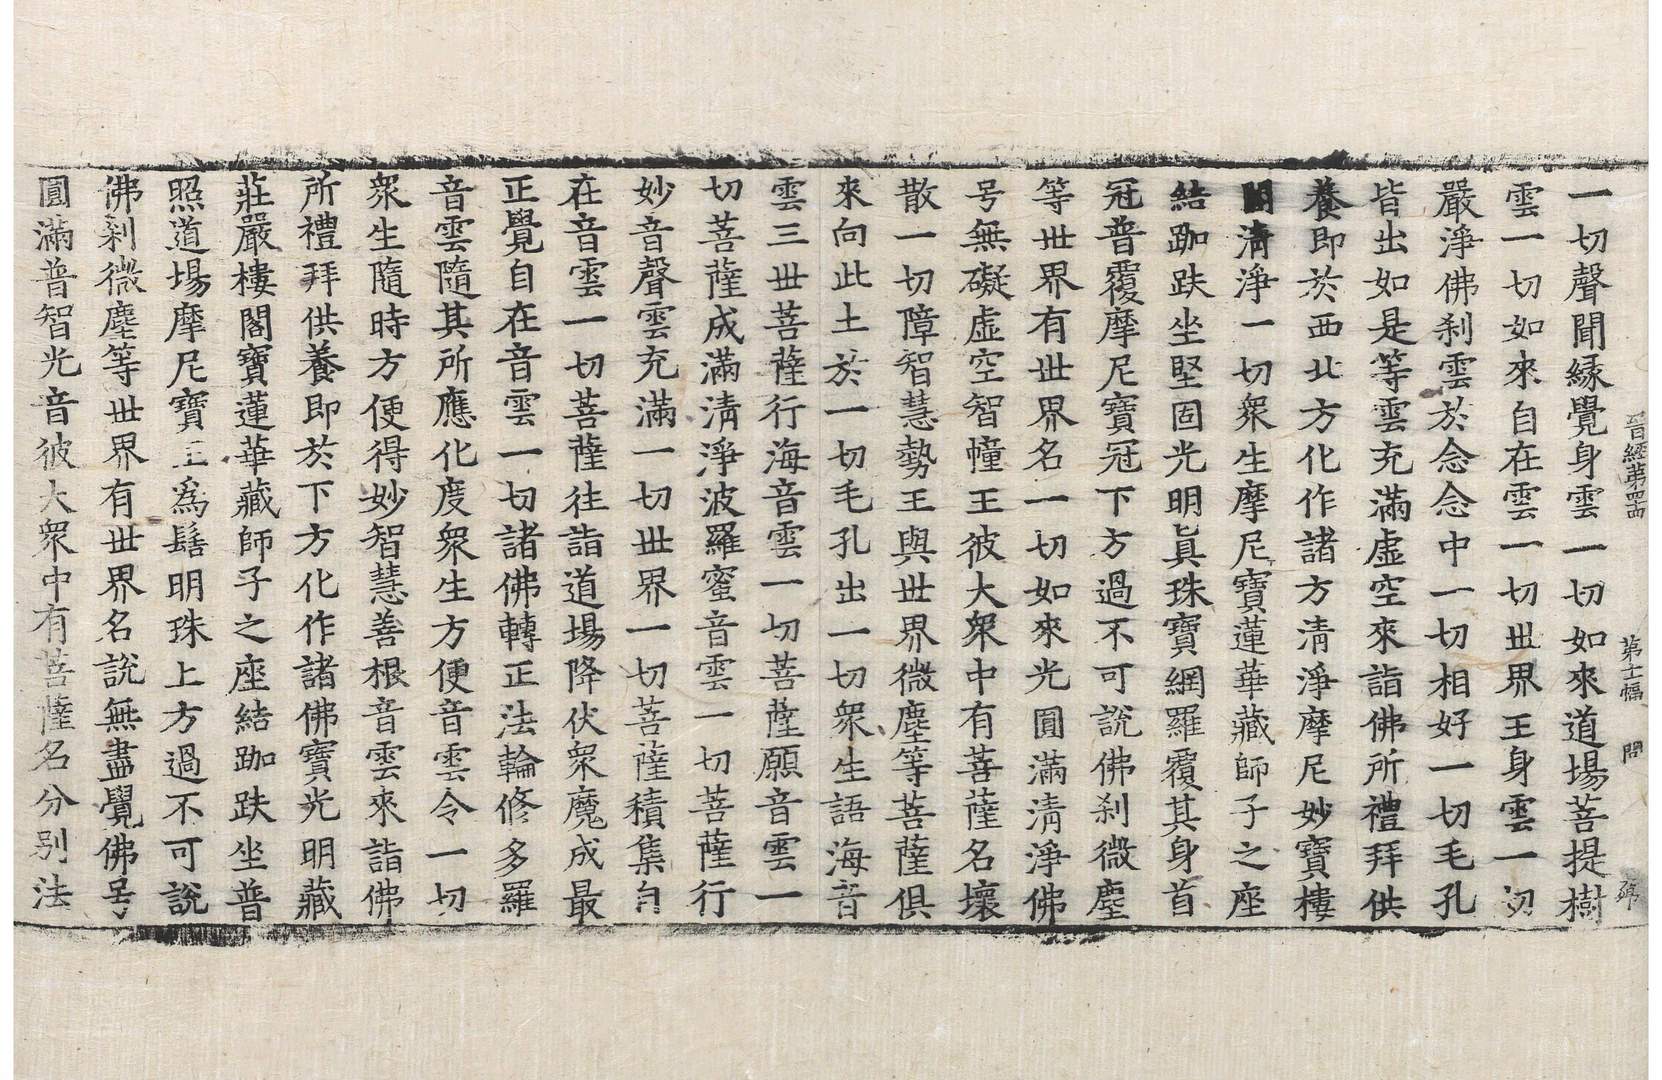 晉經第四十四 第十一幅 問
一切聲聞緣覺身雲一切如來道場菩提樹
雲一切如來自在雲一切世界王身雲一切
嚴淨佛刹雲於念念中一切相好一切毛孔
皆出如是等雲充滿虛空來詣佛所禮拜供
養即於西北方化作諸方淸淨摩尼妙寶樓
閣淸淨一切衆生摩尼寶蓮華藏師子之座
結跏趺坐堅固光明眞珠寶網羅覆其身首
冠普覆摩尼寶冠下方過不可說佛刹微塵
等世界有世界名一切如來光圓滿淸淨佛
号無礙虛空智幢王彼大衆中有菩薩名壞
散一切障智慧勢王與世界微塵等菩薩俱
來向此土於一切毛孔出一切衆生語海音
雲三世菩薩行海音雲一切菩薩願音雲一
切菩薩成滿淸淨波羅蜜音雲一切菩薩行
妙音聲雲充滿一切世界一切菩薩積集自
在音雲一切菩薩往詣道場降伏衆魔成最
正覺自在音雲一切諸佛轉正法輪修多羅
音雲隨其所應化度衆生方便音雲令一切
衆生隨時方便得妙智慧善根音雲來詣佛
所禮拜供養即於下方化作諸佛寶光明藏
莊嚴樓閣寶蓮華藏師子之座結跏趺坐普
照道場摩尼寶王爲髻明珠上方過不可說
佛刹微塵等世界有世界名說無盡覺佛号
圓滿普智光音彼大衆中有菩薩名分別法